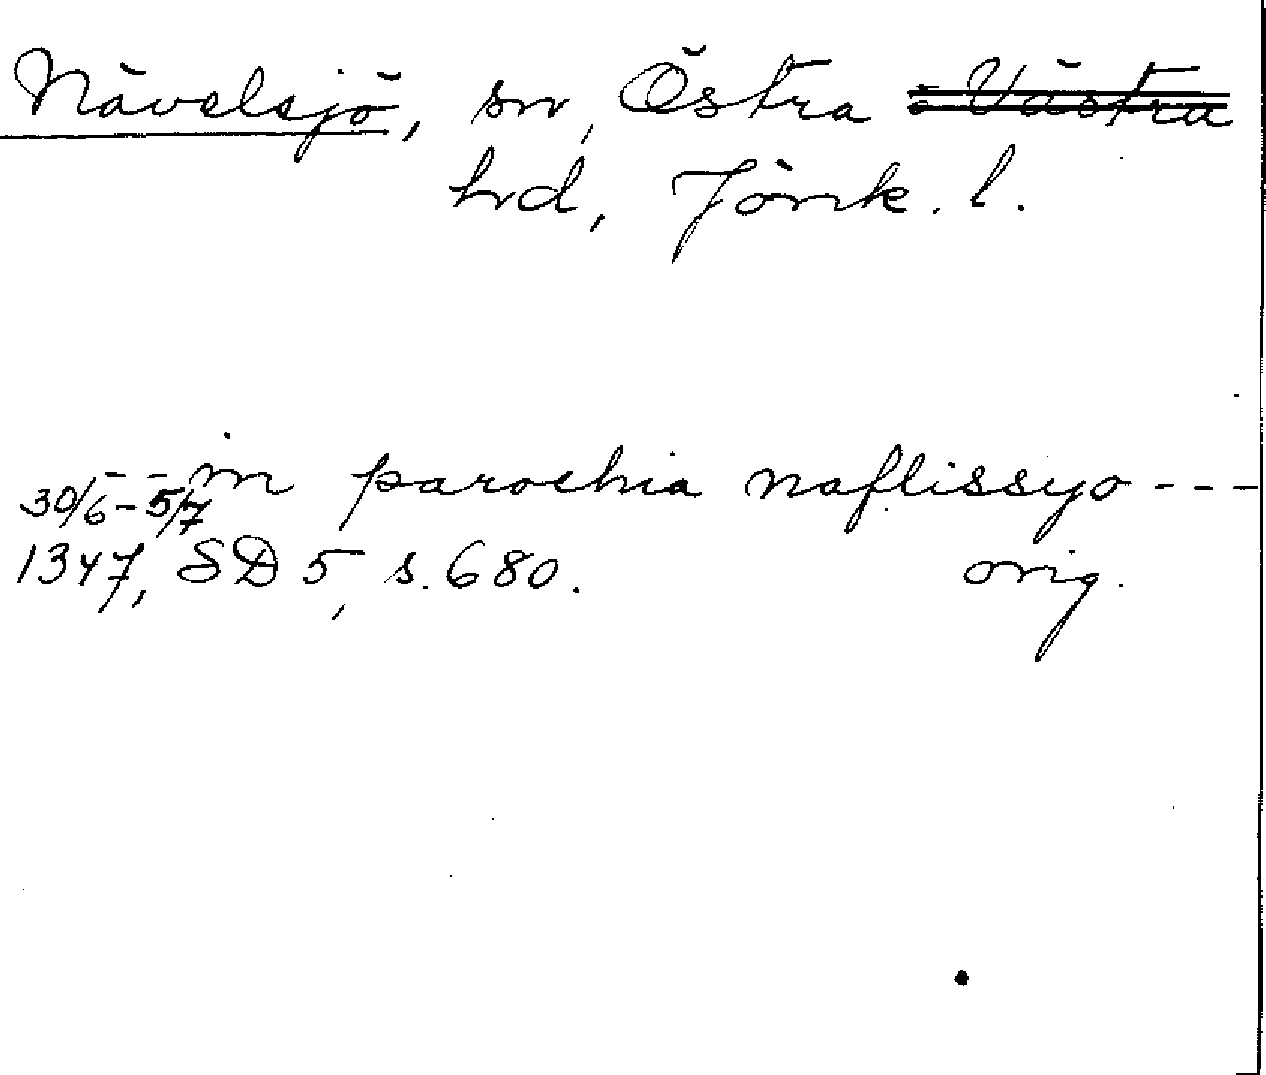 Nävelsjö, sn, Östra ö Västra
hrd, Jönk. l.
- - in parochia naflissyo - - -
30/6-5/7
1347, SD 5, s. 680. orig.